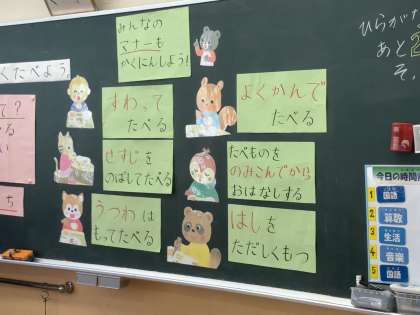 みんなの
マナーも
かくにんしよう!
くたべよう。
すわって
たべる
せすじを
のばしてたべる
うつわは
もってたべる
よくかんで
たべる
たべものを
のみこんでから
おはなしする
はしを
ただしくもつ
ひらがな
あと2
そ
今日の時間
1 国語
2 算数
3 生活
4 音楽
5 国語